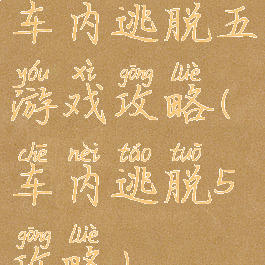 车内逃脱五
yóu xì gōng lüè
游戏攻略(
chē nèi táo tuō
车内逃脱5
gōng lüè
攻略)